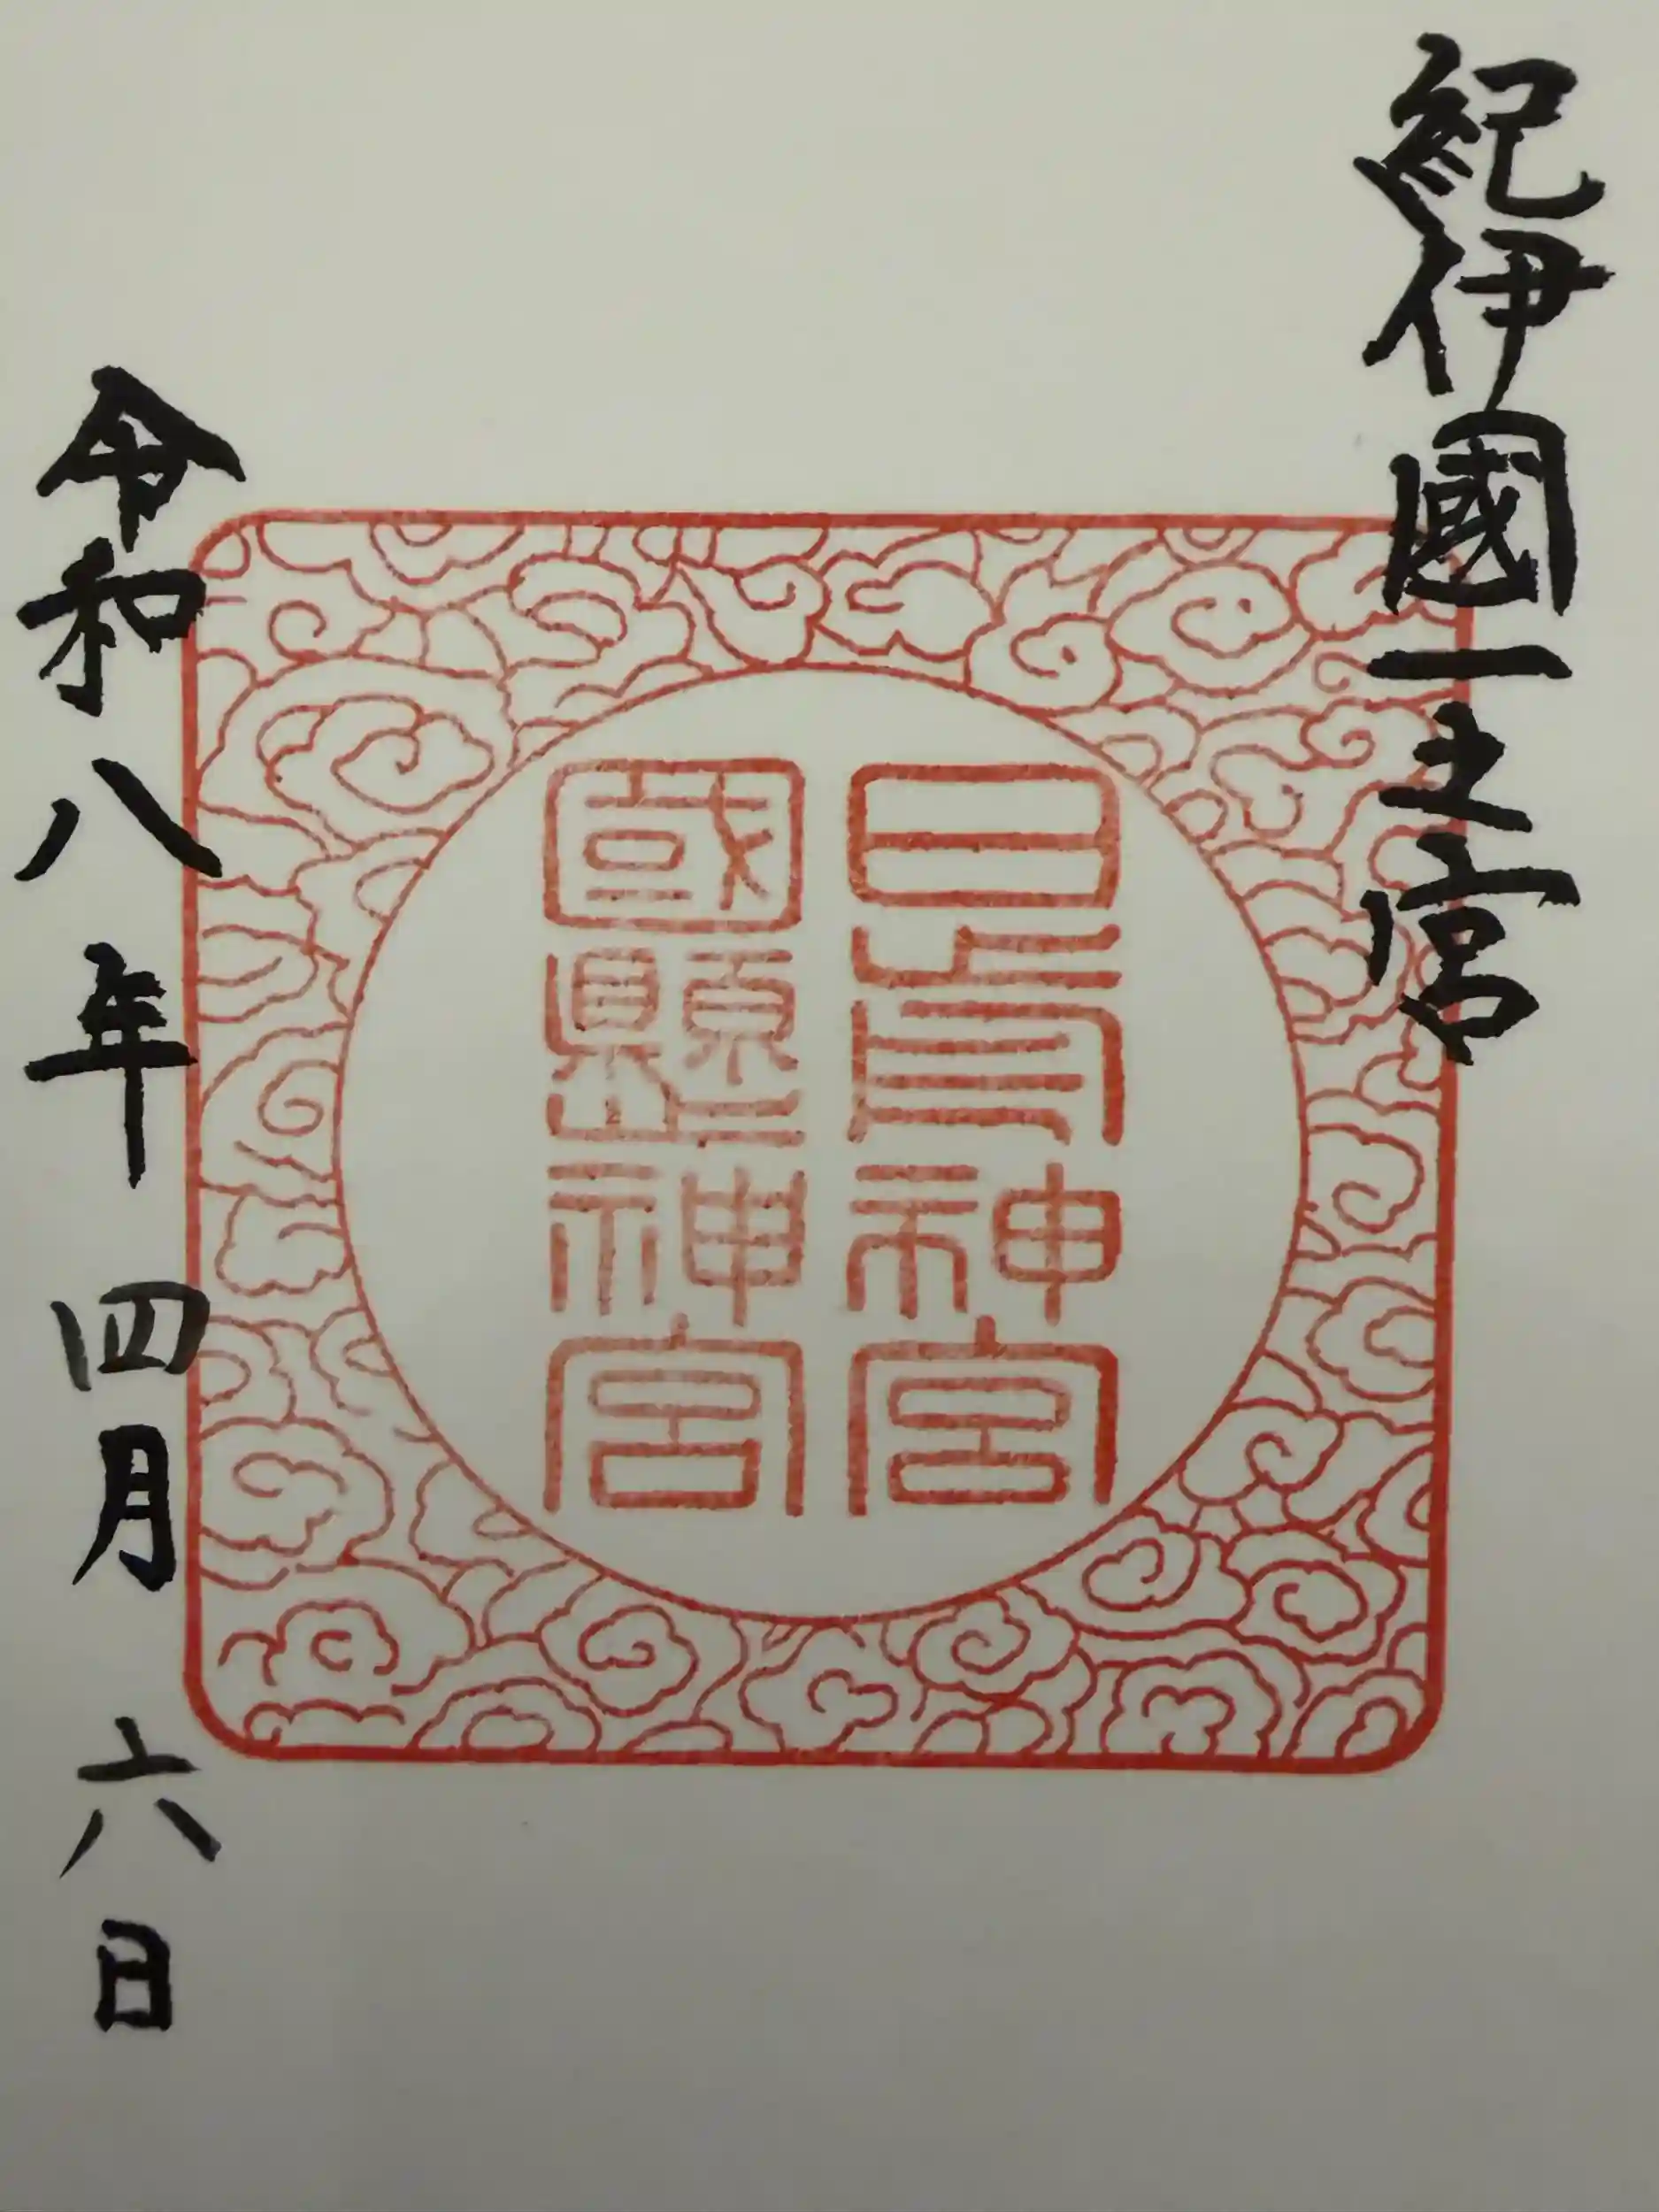 紀伊國一之宮
日前神宮
國懸神宮
令和八年四月六日